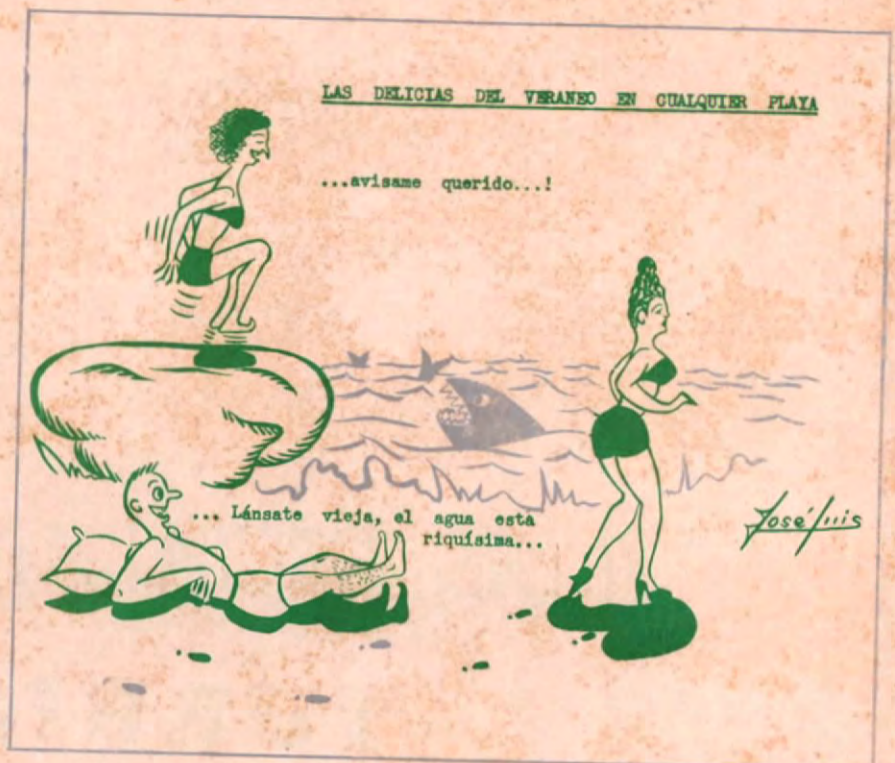 LAS DELICIAS DEL VERANEO EN CUALQUIER PLAYA
...avisame querido...!
... Lánsate vieja, el agua esta
riquísima...
José Luis